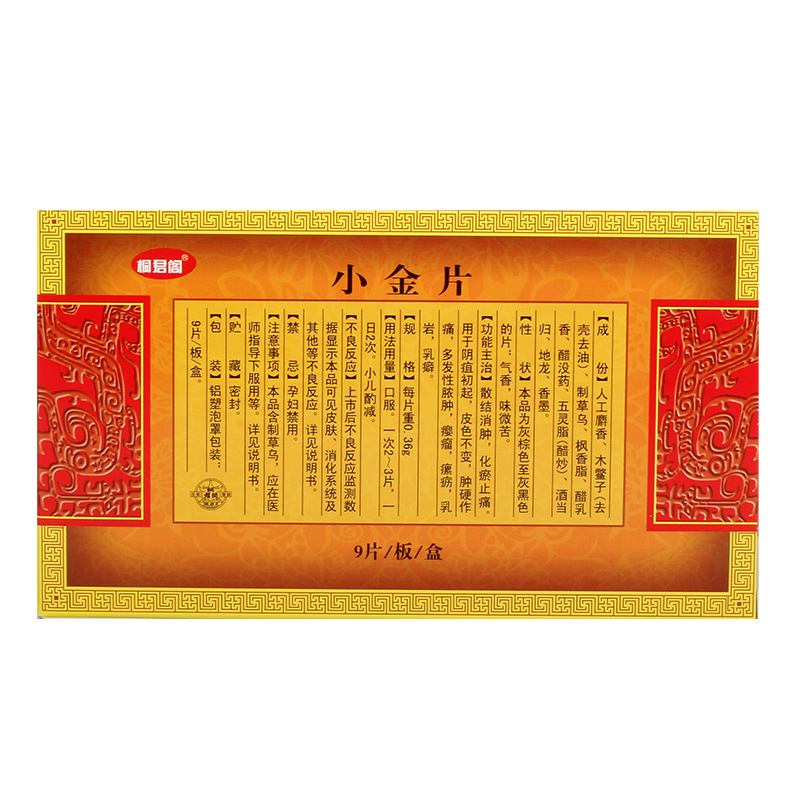 桐君阁®
小金片
【成份】人工麝香、木鳖子(去
壳去油)、制草乌、枫香脂、醋乳
香、醋没药、五灵脂(醋炒)、酒当
归、地龙、香墨。
【性状】本品为灰棕色至灰黑色
的片；气香，味微苦。
【功能主治】散结消肿，化瘀止痛。
用于阴疽初起，皮色不变，肿硬作
痛，多发性脓肿，瘿瘤，瘰疬，乳
岩，乳癖。
【规格】每片重0.36g
【用法用量】口服。一次2～3片，一
日2次。小儿酌减。
【不良反应】上市后不良反应监测数
据显示本品可见皮肤、消化系统及
其他等不良反应。详见说明书。
【禁忌】孕妇禁用。
【注意事项】本品含制草乌，应在医
师指导下服用等。详见说明书。
【贮藏】密封。
【包装】铝塑泡罩包装：
9片/板/盒。
9片/板/盒